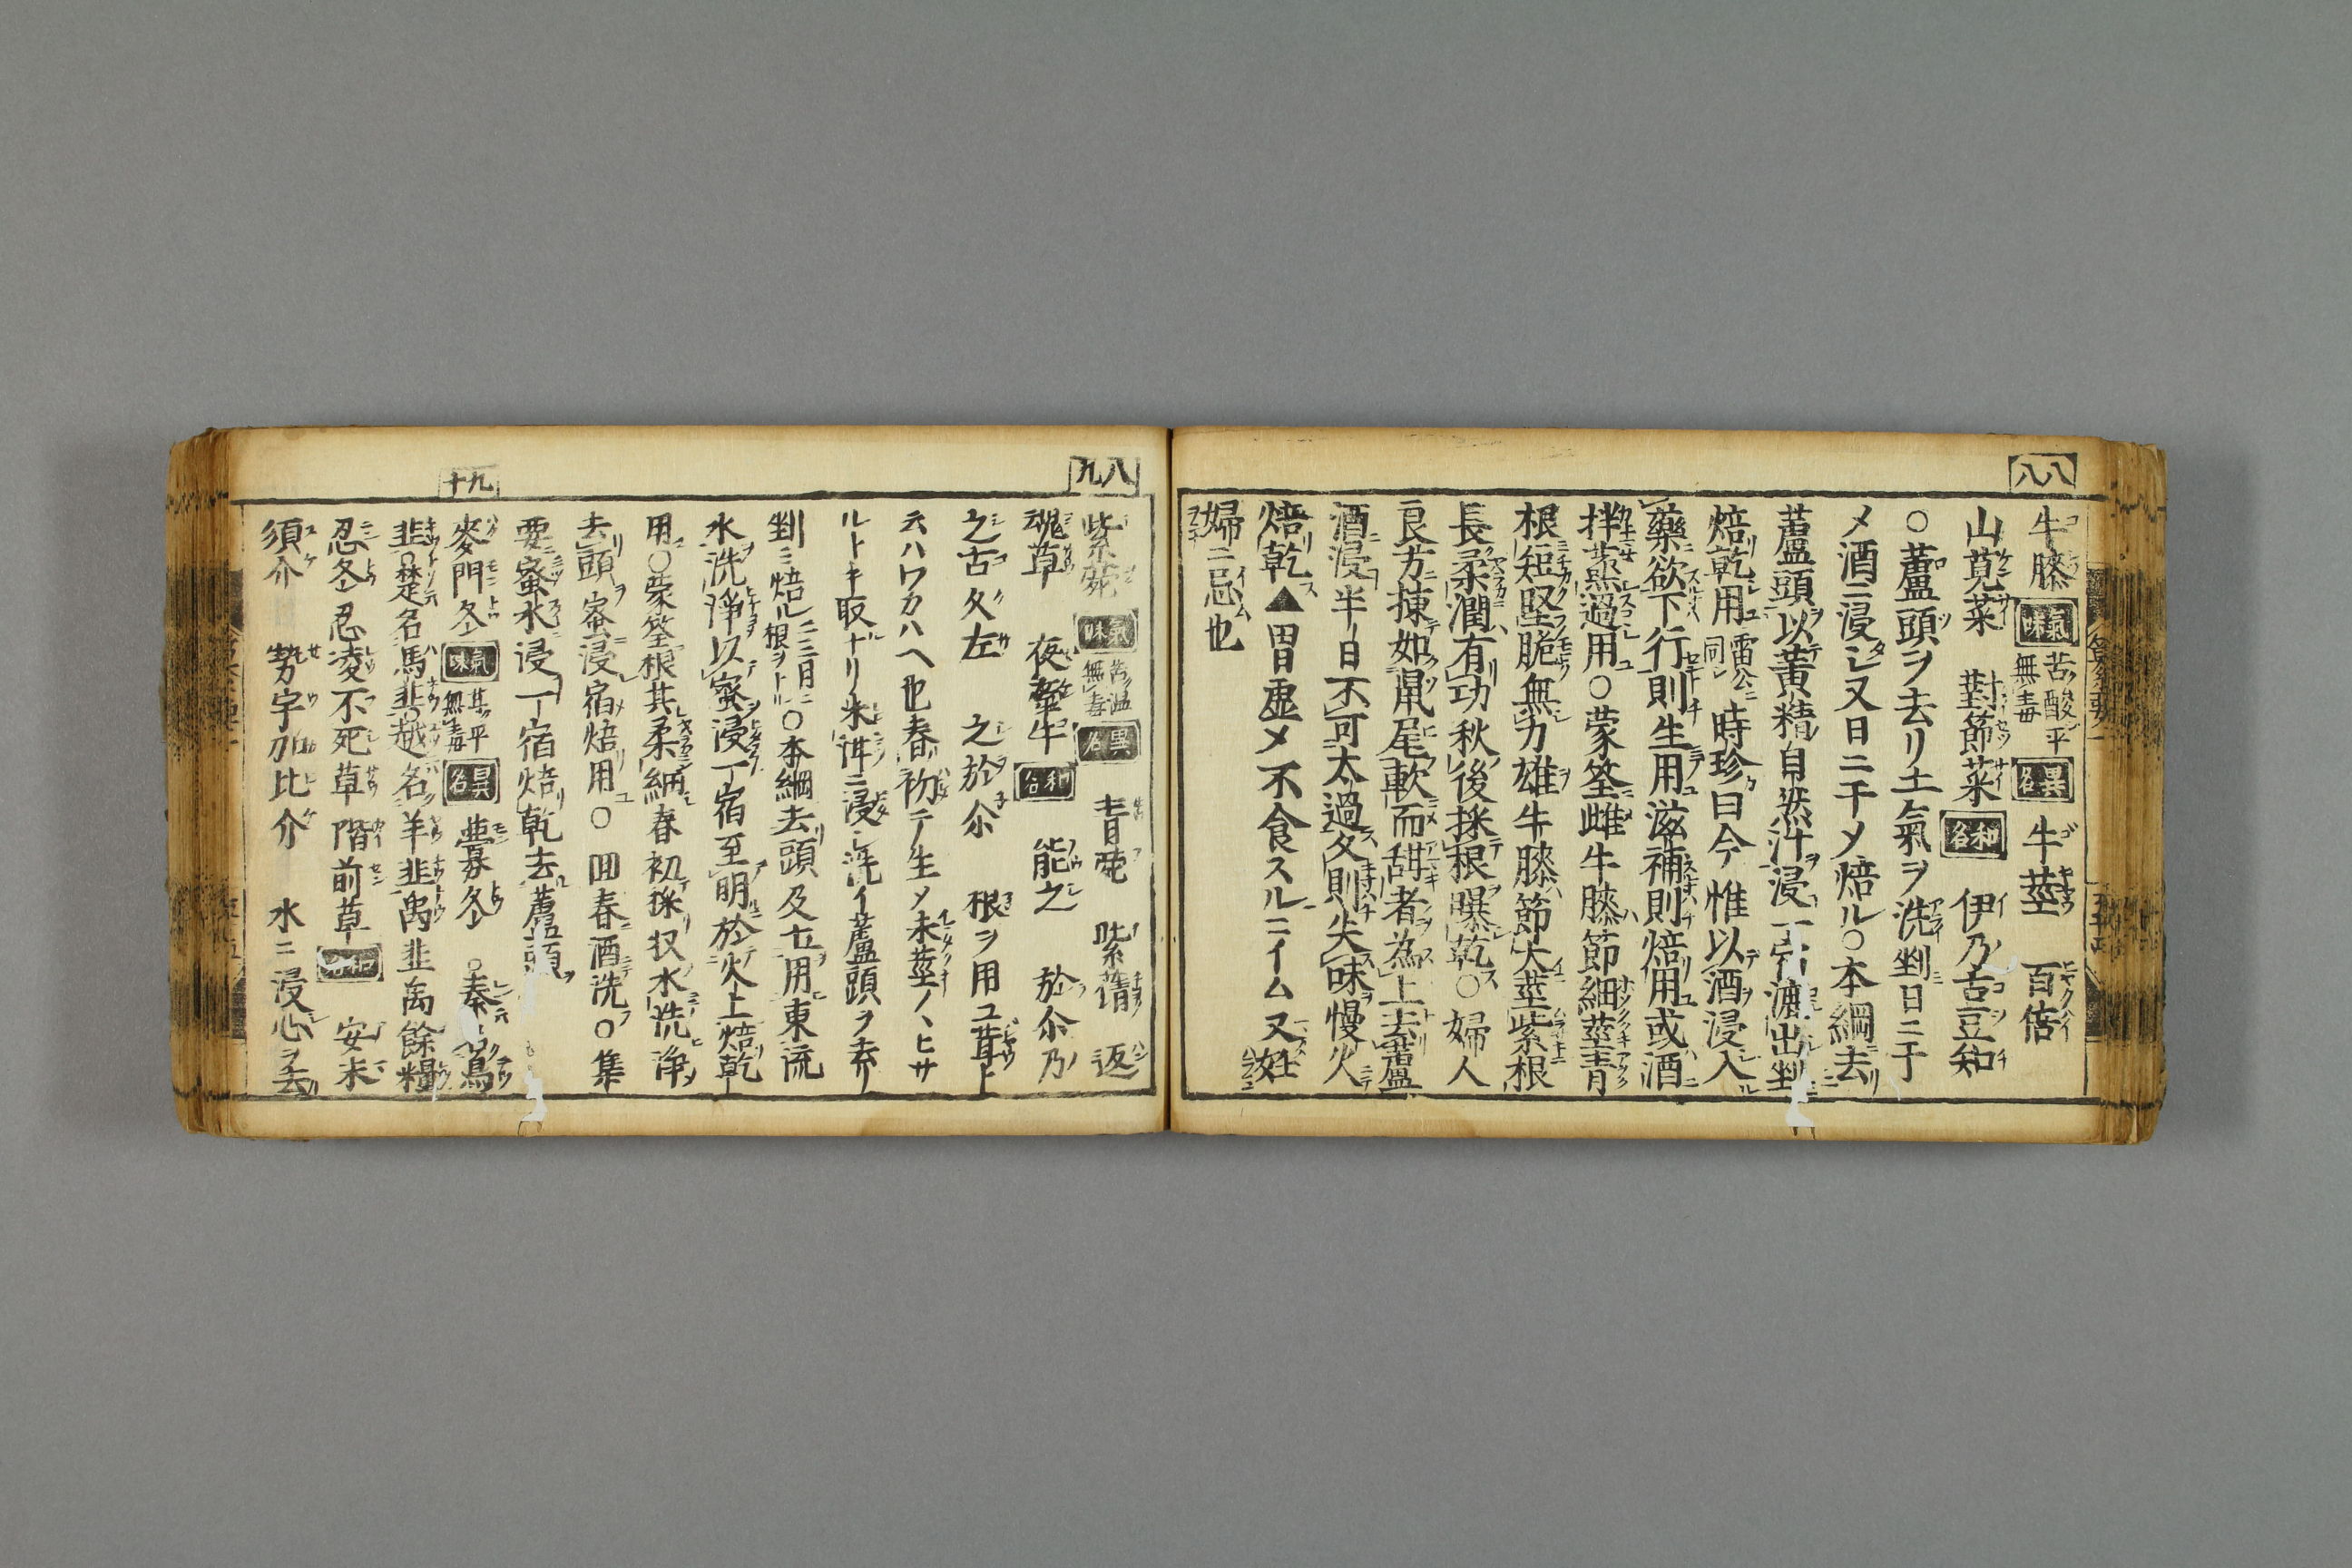 八八
牛膝 氣味 苦酸平無毒 異名 牛莖 百倍
山莧菜 對節菜 和名 伊乃古豆知
○蘆頭ヲ去リ土氣ヲ洗剉日ニ干
メ酒ニ浸シ又日ニ干メ焙ル○本綱去
蘆頭以黃精自然汁浸一宿漉出剉
焙乾用 雷公同 時珍曰今惟以酒浸入
藥欲下行則生用滋補則焙用或酒
拌蒸過用○蒙筌雌牛膝節細莖青
根短堅脆無力雄牛膝節大莖紫根
長柔潤有功秋後採根曝乾○婦人
良方揀如鼠尾軟而甜者為上去蘆
酒浸半日不可太過久則失味慢火
焙乾▲胃虚メ不食スルニイム又妊
婦ニ忌也
八九
紫菀 氣味 苦温無毒 異名 青菀 紫蒨 返
魂草 夜牽牛 和名 能之 於尓乃
之古久左 之於尓 根ヲ用ユ茸ト
云ハワカハヘ也春初テ生メ未莖ノヽヒサ
ルトキ取ナリ米泔ニ浸洗イ蘆頭ヲ去リ
剉ミ焙ル 二三月ニ根ヲトル ○本綱去頭及土用東流
水洗淨以蜜浸一宿至明於火上焙乾
用○蒙筌根其柔細春初採収水洗浄
去頭蜜浸宿焙用○回春酒洗○集
要蜜水浸一宿焙乾去蘆頭
九十
麥門冬 氣味 甘平無毒 異名 虋冬 ○秦名烏
韭○楚名馬韭○越名羊韭禹韭禹餘粮
忍冬忍凌不死草階前草 和名 安末
須介 勢宇加比介 水ニ浸心ヲ去